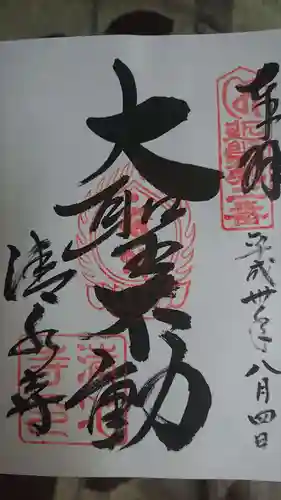 奉拝
平成卅年八月四日
大聖不動
清水寺